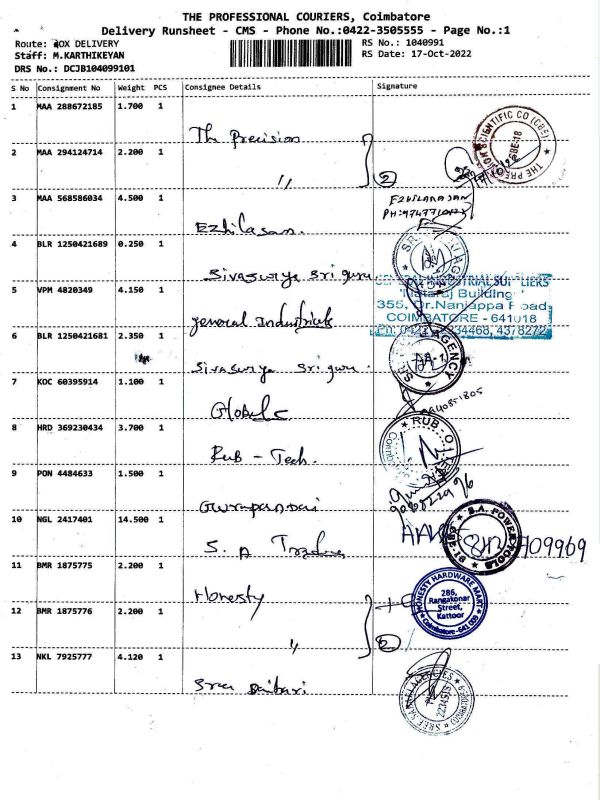 THE PROFESSIONAL COURIERS, Coimbatore
Delivery Runsheet - CMS - Phone No.:0422-3505555 - Page No.:1
Route: BOX DELIVERY
RS No.: 1040991
Staff: M.KARTHIKEYAN
RS Date: 17-Oct-2022
DRS No.: DCJB104099101
S No Consignment No Weight PCS Consignee Details Signature
1 MAA 288672185 1.700 1
The Precision
SCIENTIFIC CO (CBE)
2 MAA 294124714 2.200 1
" 2
3 MAA 568586034 4.500 1
Ezhilasan
EZHILARASAN
4 BLR 1250421689 0.250 1
Sivasurya Sri guru
5 VPM 4820349 4.150 1
General Industrials
GENERAL INDUSTRIAL SUPPLIERS
Nataraj Building
355, Dr.Nanjappa Road,
COIMBATORE - 641018
4378272
6 BLR 1250421681 2.350 1
Sivasurya Sri guru.
AGENCY
7 KOC 60395914 1.100 1
8 HRD 369230434 3.700 1
Rub - Tech.
RUB
9 PON 4484633 1.500 1
10 NGL 2417401 14.500 1
S. A Traders
S.A. POWER TOOLS
11 BMR 1875775 2.200 1
Honesty
HONESTY HARDWARE MART
286,
Rangakonar
Street,
Kattoor
Coimbatore - 641 009
12 BMR 1875776 2.200 1
" 2
13 NKL 7925777 4.120 1
Sree
SREE AGENCIES